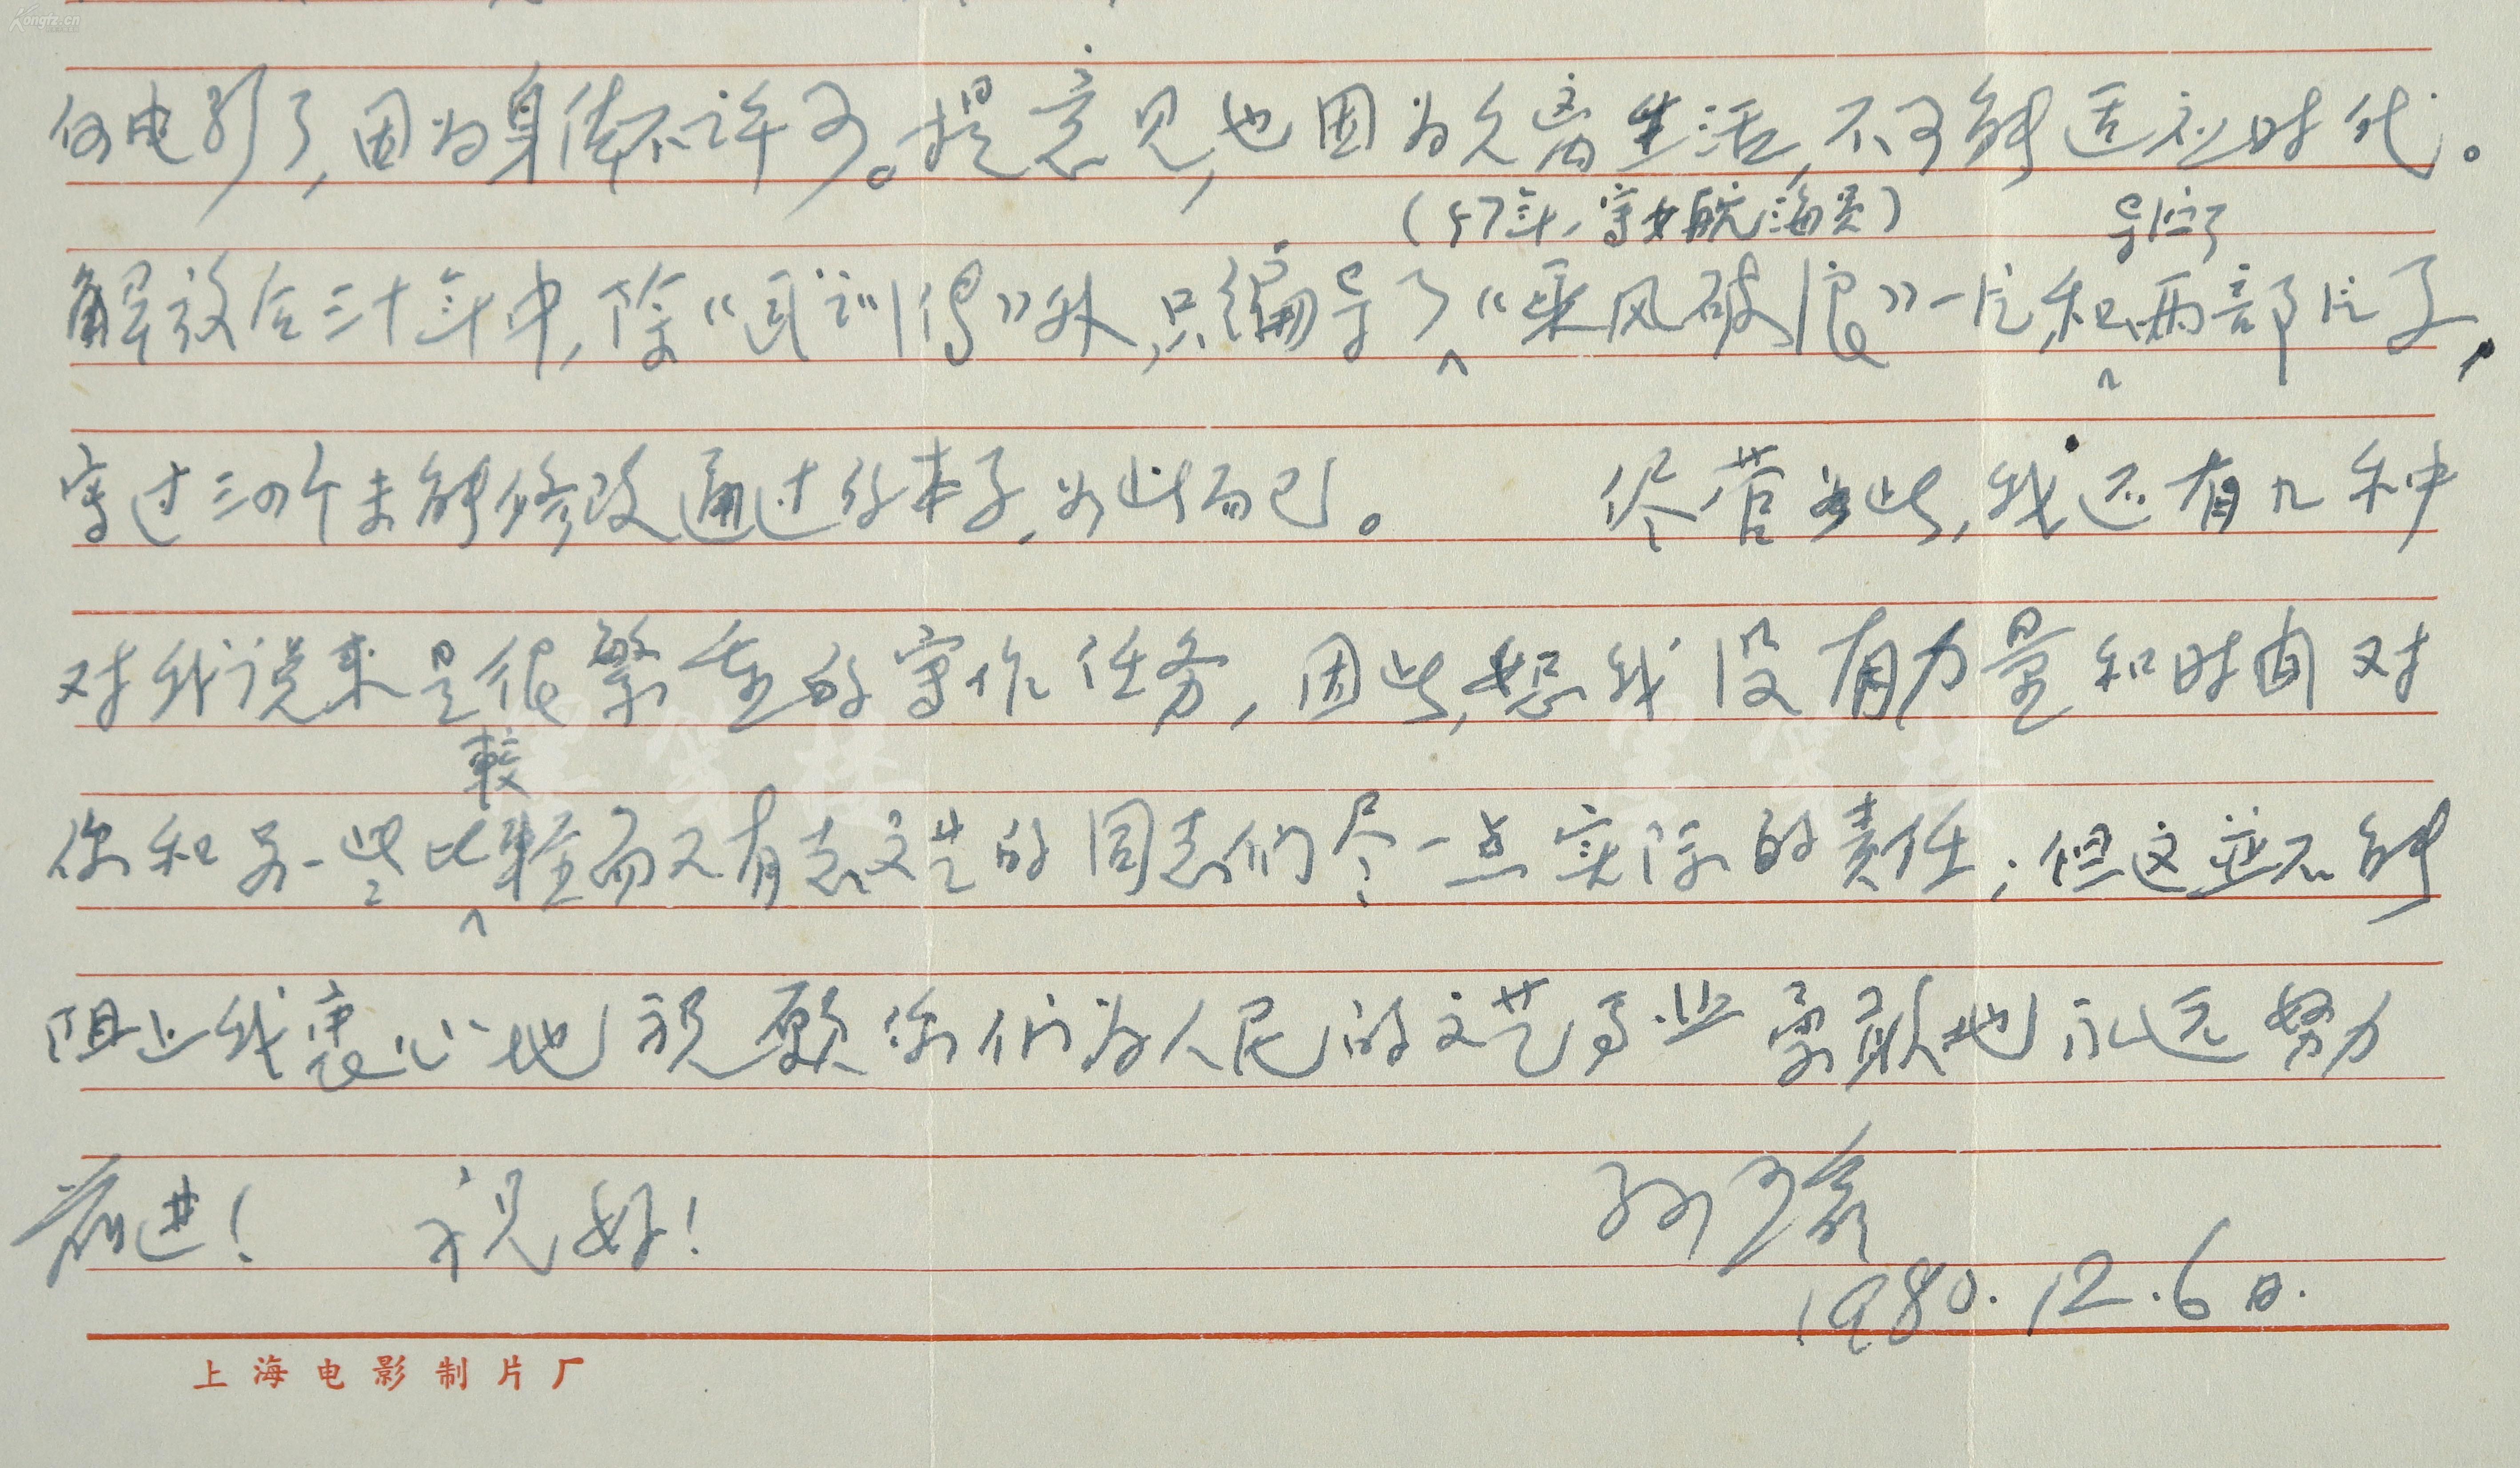 Kongfz.cn
何电影了，因为身体不许可。提意见，也因为久离生活，不可能适应时代。
（57年，写女航海员）
导演了
解放后三十年中，除《武训传》外，只编导了《乘风破浪》一片和两部片子，
写过三四个未能修改通过的本子，如此而已。 尽管如此，我还有几种
对我说来是很繁重的写作任务，因此，恕我没有力量和时间对
較
你和另一些比轻而又有志文艺的同志们尽一点实际的责任；但这並不能
阻止我衷心地祝愿你们为人民的文艺事业勇敢地永远努力
前进！ 祝好！
孙瑜
1980.12.6日.
上海电影制片厂